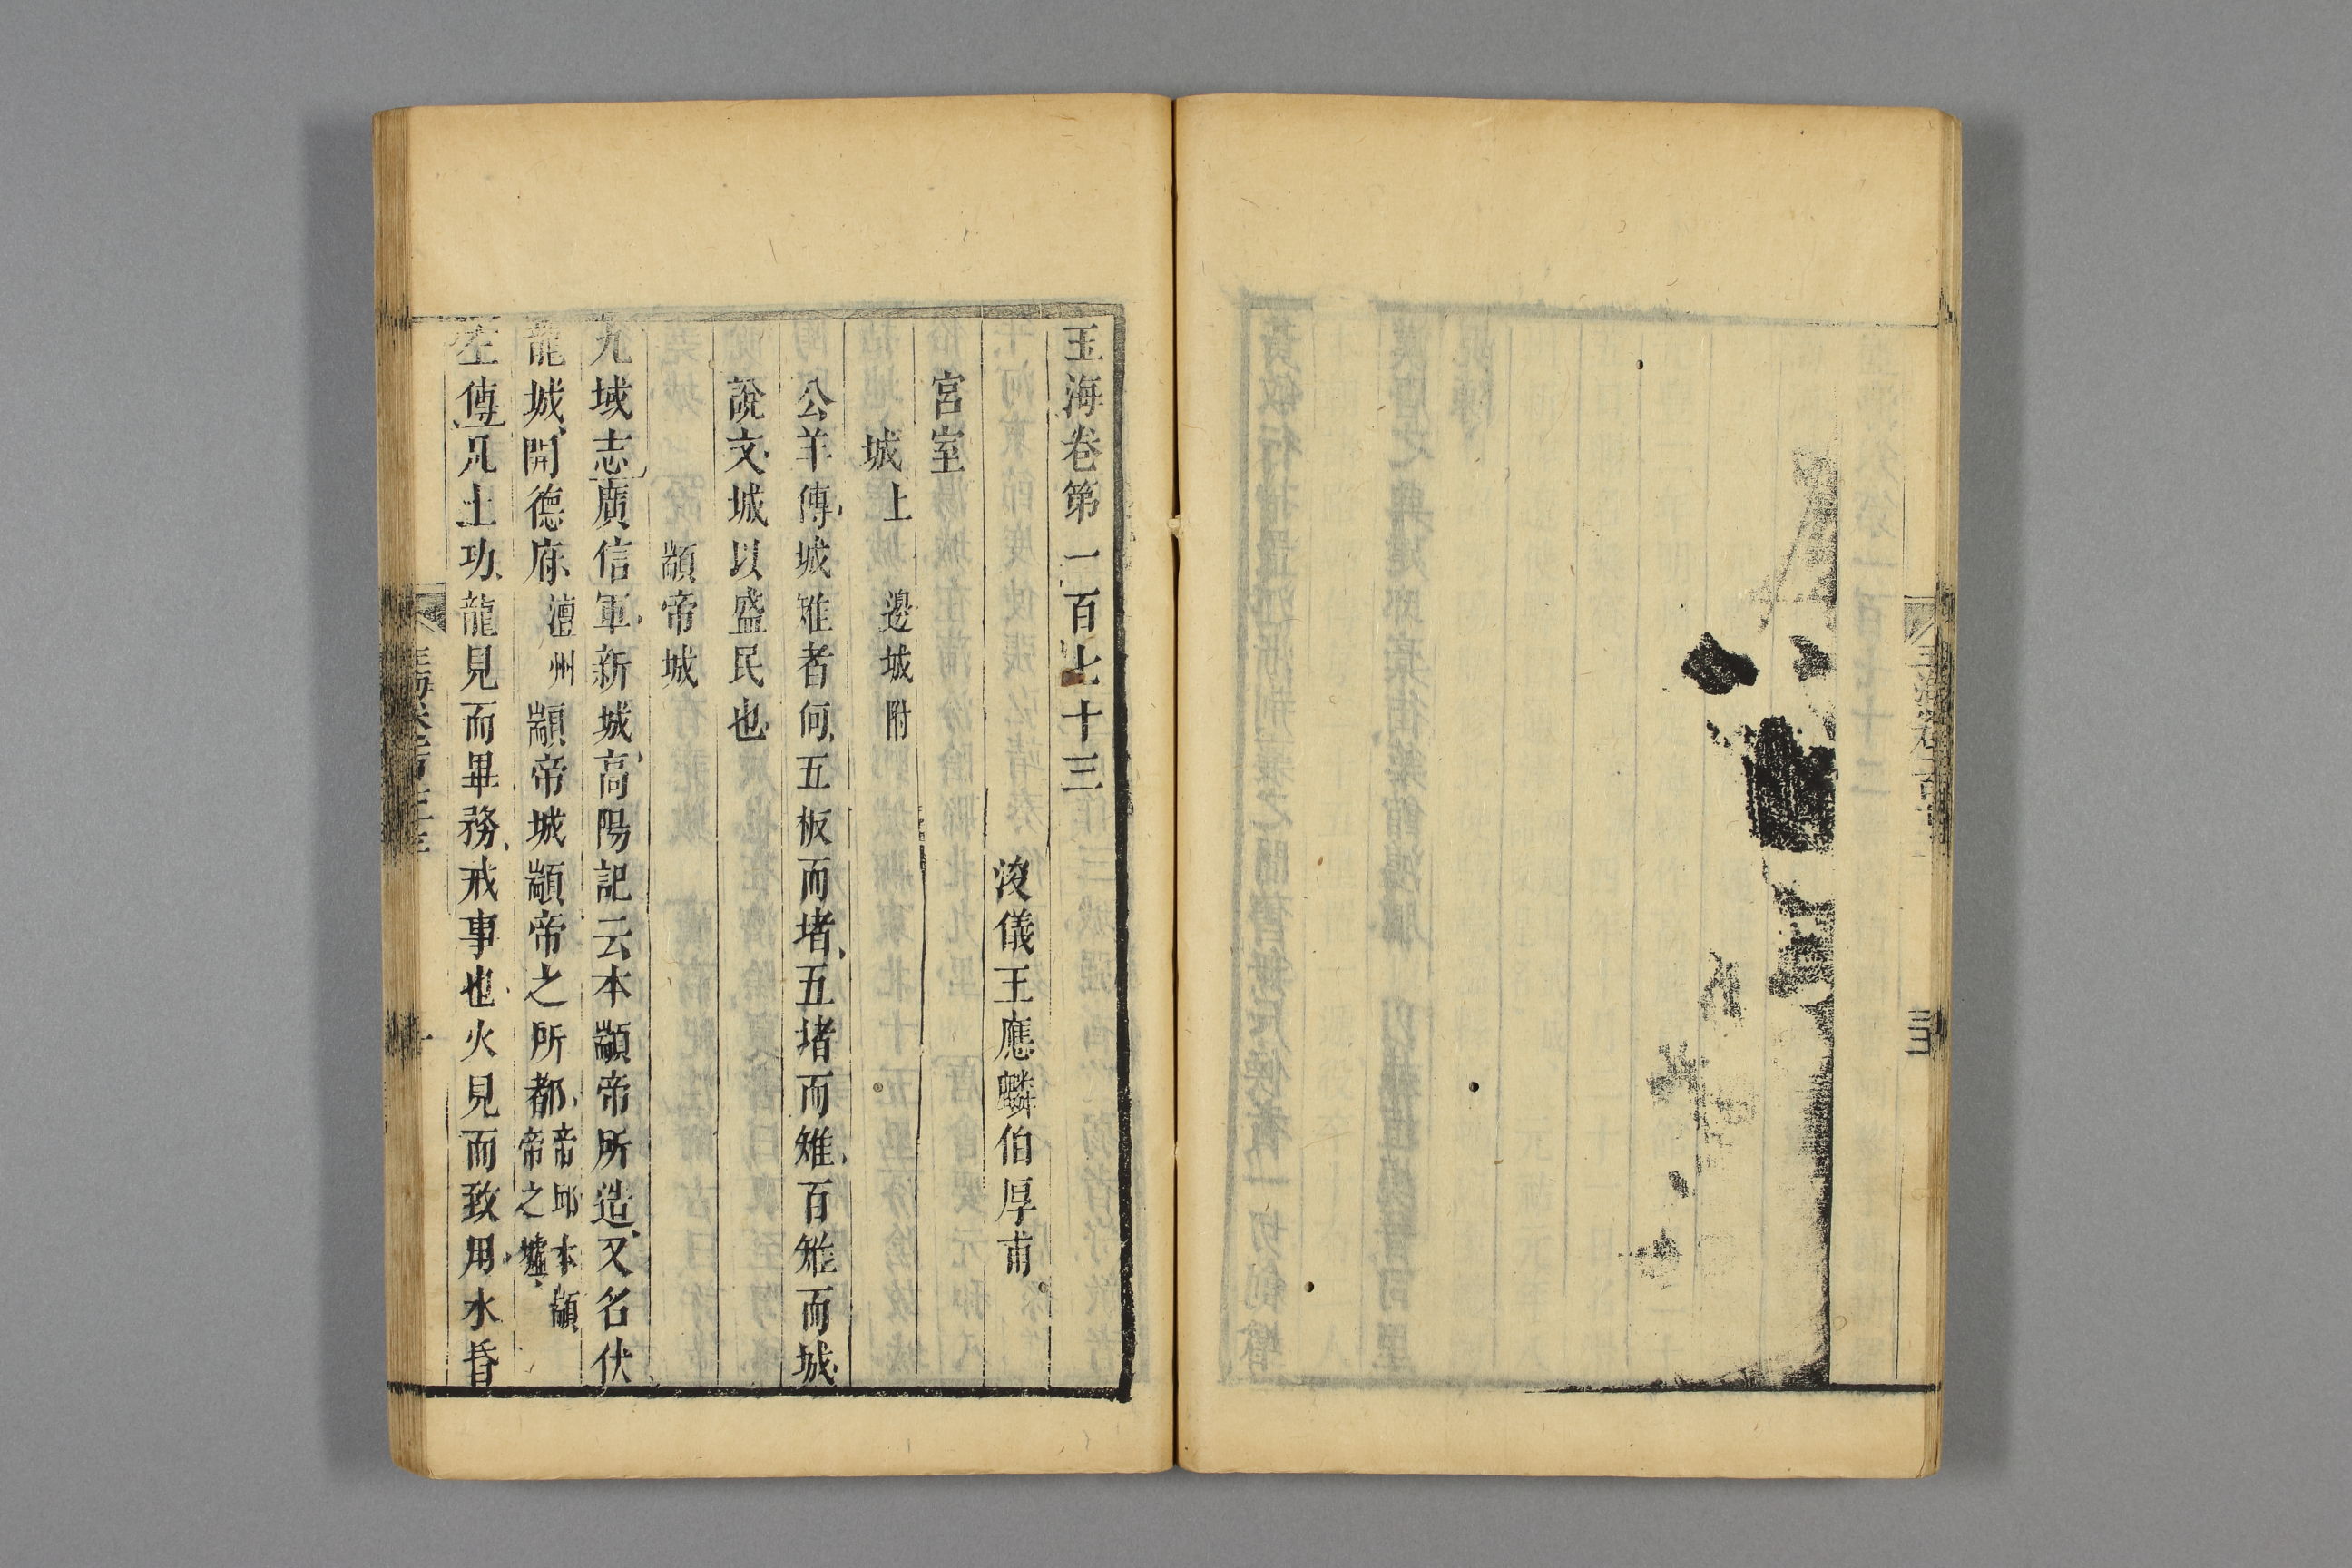 玉海卷第一百七十三
浚儀王應麟伯厚甫
宮室
城上 邊城附
公羊傳城雉者何五板而堵五堵而雉百雉而城
說文城以盛民也
顓帝城
九域志廣信軍新城高陽記云本顓帝所造又名伏
龍城開德府澶州顓帝城顓帝之所都帝邱本顓帝之墟
左傳凡土功龍見而畢務戒事也火見而致用水昏